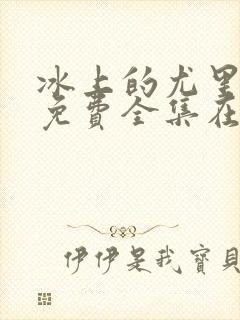 冰上的尤里
免費全集在
伊伊是我寶貝